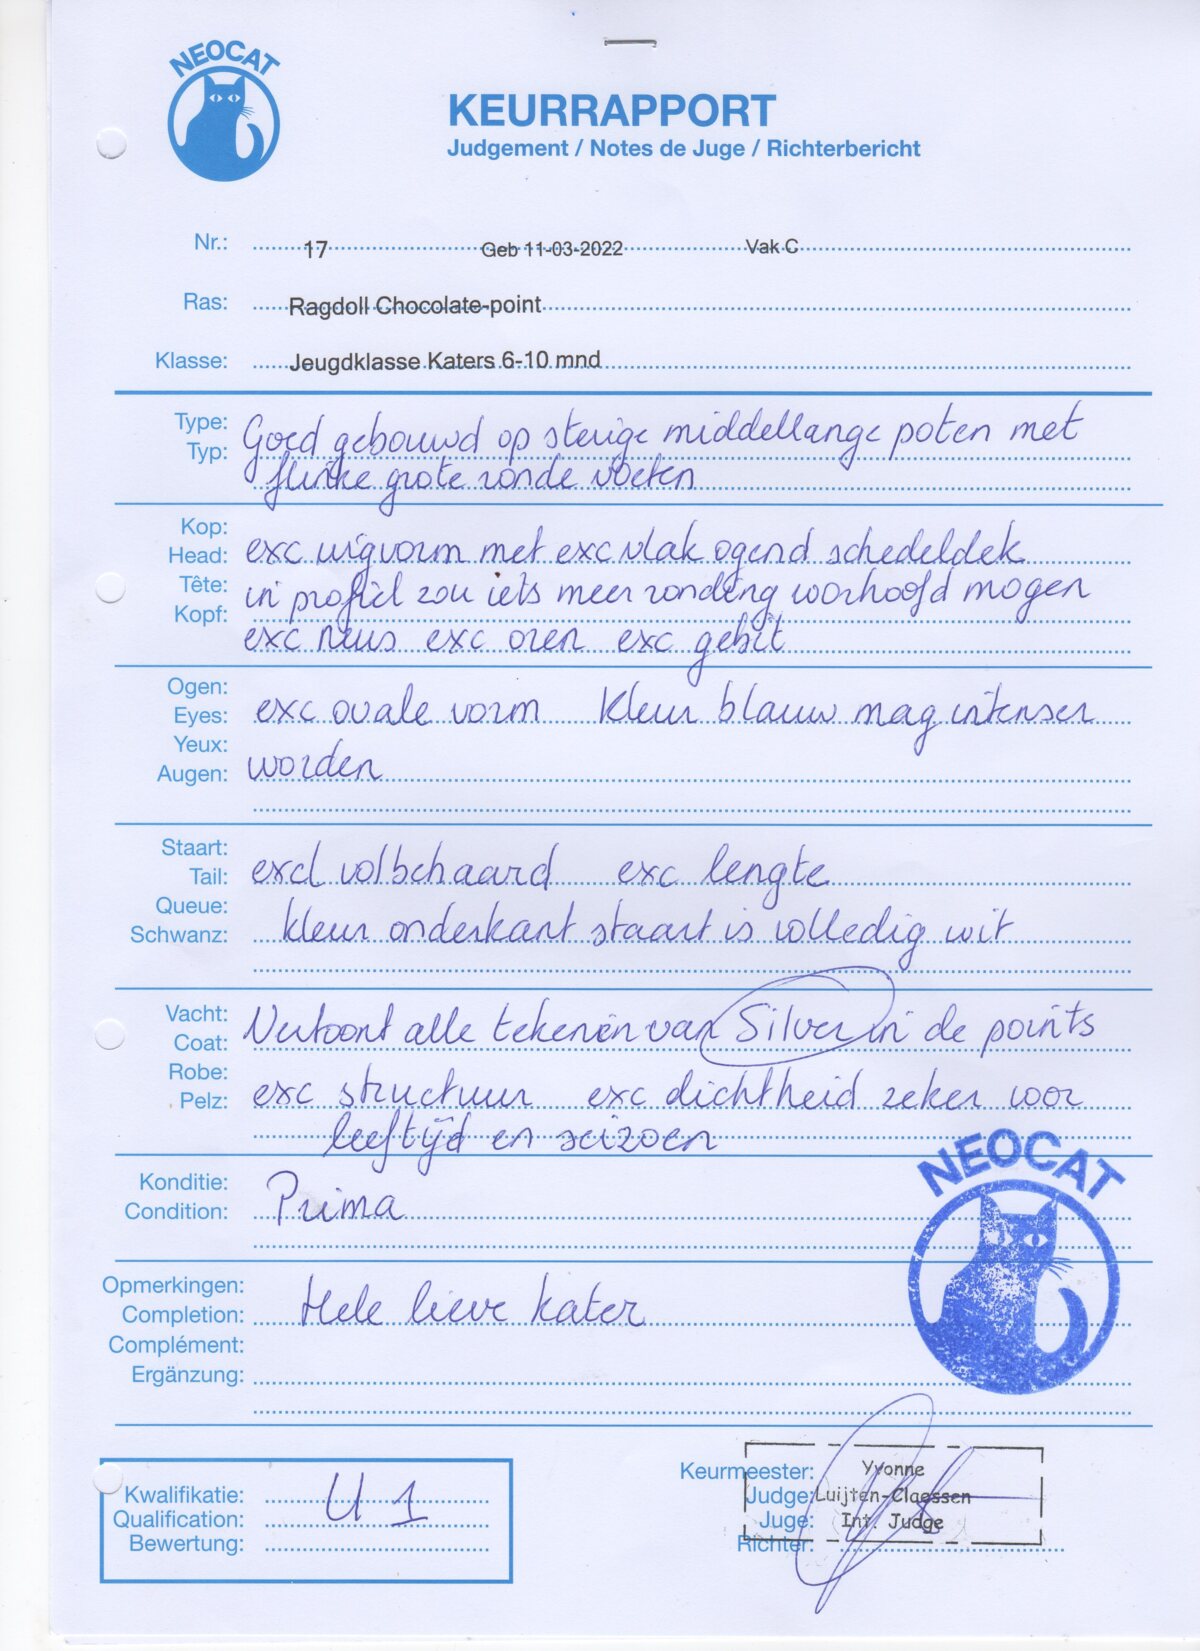 NEOCAT
KEURRAPPORT
Judgement / Notes de Juge / Richterbericht
Nr.: 17 Geb 11-03-2022 Vak C
Ras: Ragdoll Chocolate-point
Klasse: Jeugdklasse Katers 6-10 mnd
Type:
Typ:
Goed gebouwd op stevige middellange poten met
flinke grote ronde voeten
Kop:
Head:
Tête:
Kopf:
exc wigvorm met exc vlak ogend schedeldek
in profiel zou iets meer ronding voorhoofd mogen
exc neus exc oren exc gebit
Ogen:
Eyes:
Yeux:
Augen:
exc ovale vorm kleur blauw mag intenser
worden
Staart:
Tail:
Queue:
Schwanz:
excl volbehaard exc lengte
kleur onderkant staart is volledig wit
Vacht:
Coat:
Robe:
Pelz:
Vertoont alle tekenen van Silver in de points
exc structuur exc dichtheid zeker voor
leeftijd en seizoen
Konditie:
Condition:
Prima
NEOCAT
Opmerkingen:
Completion:
Complément:
Ergänzung:
Hele lieve kater
Kwalifikatie:
Qualification:
Bewertung:
U 1
Keurmeester:
Judge:
Juge:
Richter:
Yvonne
Luijten-Claessen
Int. Judge